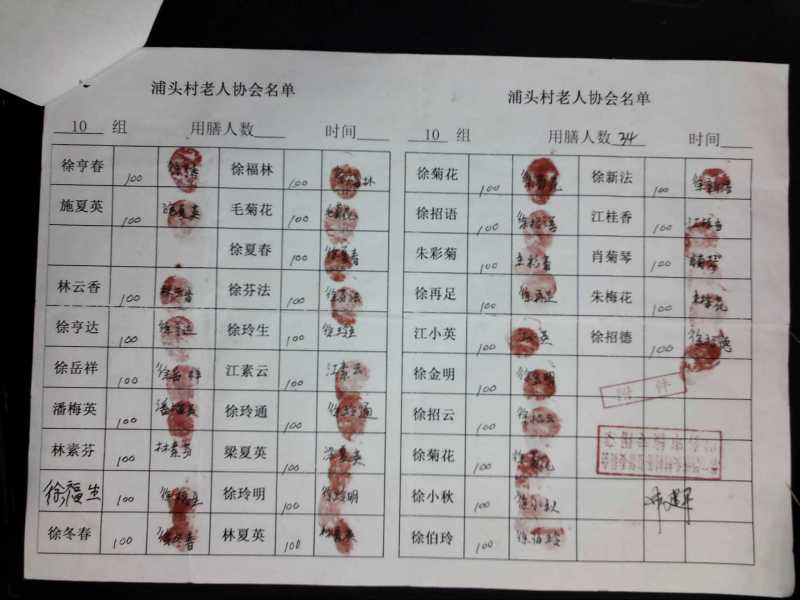 浦头村老人协会名单
10 组 用膳人数 时间
徐亨春 100 徐福林 100
施夏英 100 施夏英 毛菊花 100
徐夏春 100
林云香 100 徐芬法 100 徐芬法
徐亨达 100 徐玲生 100
徐岳祥 100 徐岳祥 江素云 100 江素云
潘梅英 100 徐玲通 100 徐玲通
林素芬 100 林素芬 梁夏英 100 梁夏英
徐福生 100 徐玲明 100 徐玲明
徐冬春 100 徐冬春 林夏英 100
浦头村老人协会名单
10 组 用膳人数 34 时间
徐菊花 100 徐新法 100 徐新法
徐招语 100 徐招语 江桂香 100 江桂香
朱彩菊 100 肖菊琴 100
徐再足 100 朱梅花 100
江小英 100 徐招德 100 徐招德
徐金明 100 徐金明
徐招云 100 徐招云
徐菊花 100
徐小秋 100 徐小秋
徐伯玲 100 徐伯玲